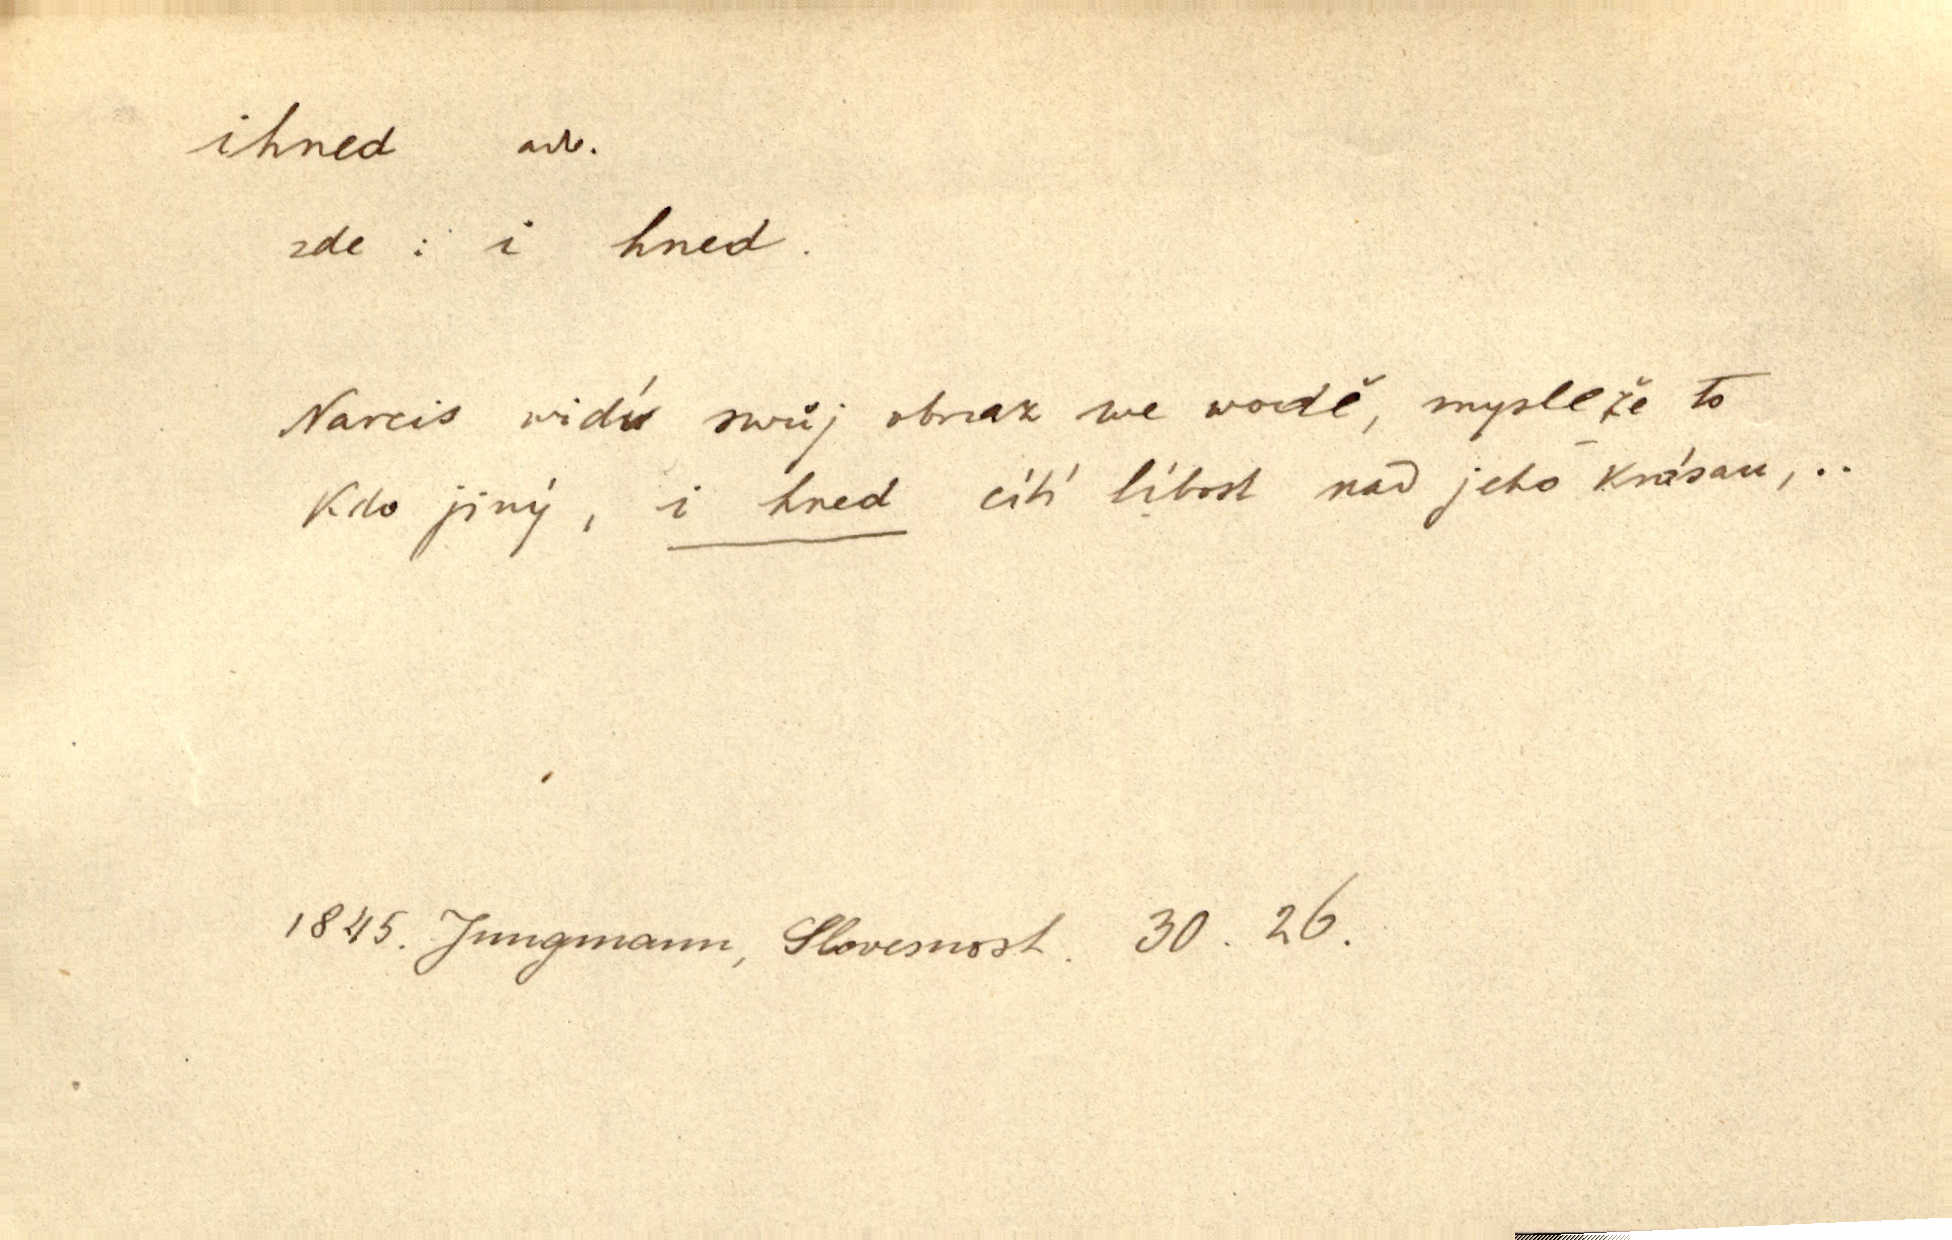 ihned adv.
zde : i hned.
Narcis vidí swůj obraz we wodě, mysle že to
kdo jiný, i hned cítí líbost nad jeho krásau, ..
1845. Jungmann, Slovesnost. 30. 26.